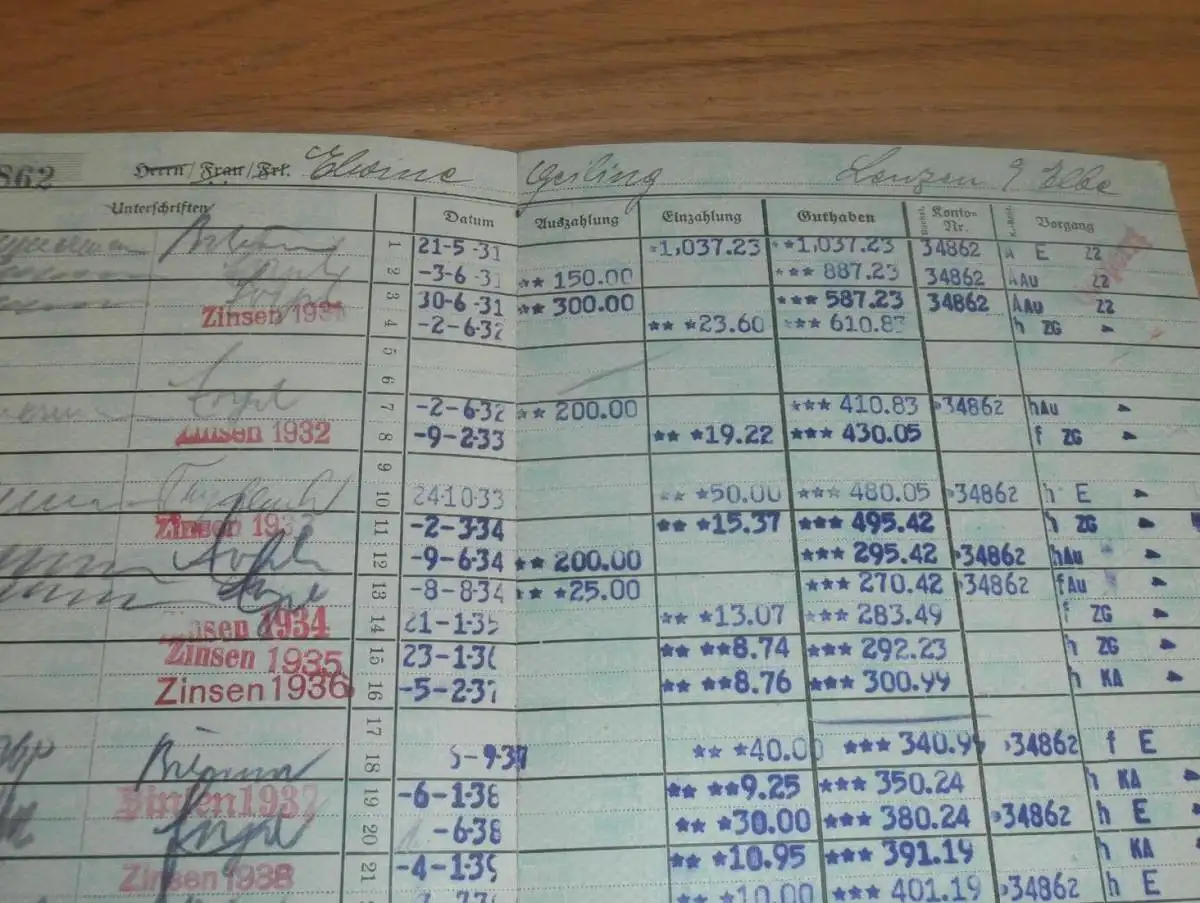 862 Herrn / Frau / Frl. Geiling Lenzen Elbe
Unterschriften Datum Auszahlung Einzahlung Guthaben Konto-Nr. Vorgang
1 21-5-31 *1,037.23 **1,037.23 34862 E 22
2 -3-6-31 ** 150.00 *** 887.23 34862 Au 22
3 30-6-31 ** 300.00 *** 587.23 34862 Au 22
Zinsen 1931 4 -2-6-32 ** *23.60 *** 610.83 h ZG
5
6
7 -2-6-32 ** 200.00 *** 410.83 34862 hAu
Zinsen 1932 8 -9-2-33 ** *19.22 *** 430.05 f ZG
9
10 24-10-33 ** *50.00 *** 480.05 34862 h E
Zinsen 1933 11 -2-3-34 ** *15.37 *** 495.42 h ZG
12 -9-6-34 ** 200.00 *** 295.42 34862 hAu
13 -8-8-34 ** *25.00 *** 270.42 34862 fAu
Zinsen 1934 14 21-1-35 ** *13.07 *** 283.49 f ZG
Zinsen 1935 15 23-1-36 ** **8.74 *** 292.23 h ZG
Zinsen 1936 16 -5-2-37 ** **8.76 *** 300.99 h KA
17
18 -9-37 ** *40.00 *** 340.99 34862 f E
Zinsen 1937 19 -6-1-38 ** **9.25 *** 350.24 h KA
20 -6-38 ** *30.00 *** 380.24 34862 h E
Zinsen 1938 21 -4-1-39 ** *10.95 *** 391.19 h KA
** *10.00 *** 401.19 34862 h E